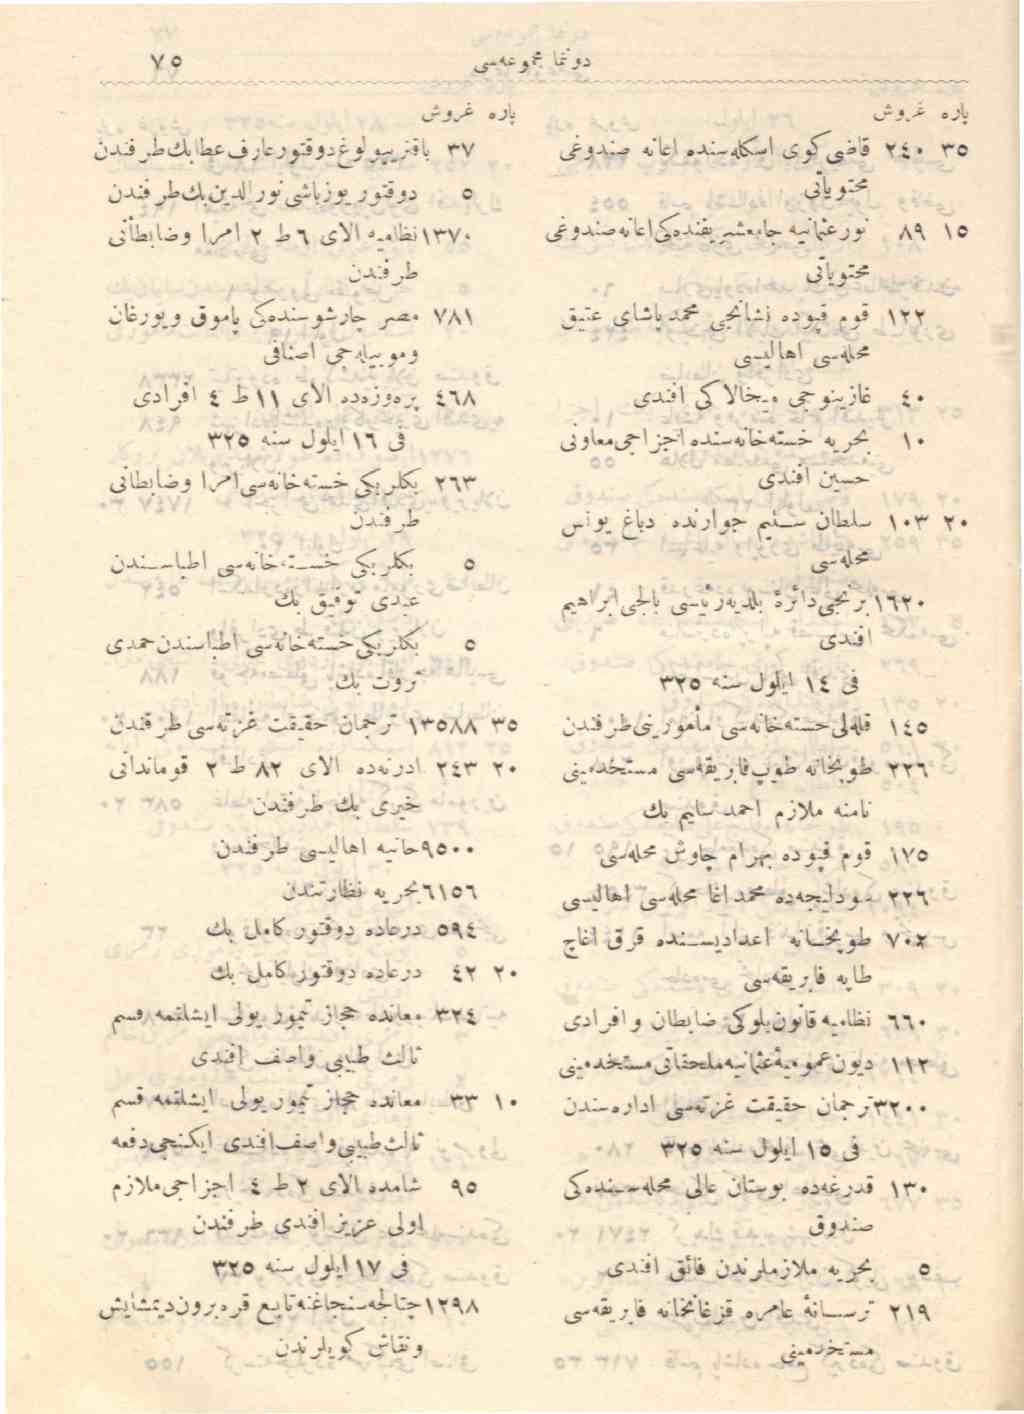 دونما مجموعه‌سی ٧٥
پاره غروش
٣٥ ٢٤٠ قاضی کوی اسکله‌سنده اعانه صندوغی
محتویاتی
١٥ ٨٩ نور عثمانیه جامعشریفنده‌کی اعانه صندوغی
محتویاتی
١٢٢ قوم قپوده نشانجی محمد پاشای عتیق
محله‌سی اهالیسی
٤٠ غازینوجی میخالاکی افندی
١٠ بحریه خسته‌خانه‌سنده اجزاجی معاونی
حسین افندی
٢٠ ١٠٣ سلطان سلیم جوارنده دباغ یونس
محله‌سی
١٦٢٠ برنجی دائرهٔ بلدیه رئیسی بالجی ابراهیم
افندی
فی ١٤ ایلول سنه ٣٢٥
١٤٥ قله‌لی خسته‌خانه‌سی مأمورینی طرفندن
٢٢٦ طوپخانه طوپ فابریقه‌سی مستخدمینی
نامنه ملازم احمد سلیم بك
١٧٥ قوم قپوده بهرام چاوش محله‌سی
٢٢٦ سودلیجه‌ده محمد اغا محله‌سی اهالیسی
٧٠٢ طوپخانه اعدادیسنده قرق اغاج
طاپه فابریقه‌سی
٦٦٠ نظامیه قانون بلوکی ضابطان و افرادی
١١٢ دیون عمومیهٔ عثمانیه ملحقاتی مستخدمینی
٣٢٠٠ ترجمان حقیقت غزته‌سی اداره‌سندن
فی ١٥ ایلول سنه ٣٢٥
١٣٠ قدرغه‌ده بوستان عالی محله‌سنده‌کی
صندوق
٥ بحریه ملازملرندن فائق افندی
٢١٩ ترسانهٔ عامره قزغانخانه فابریقه‌سی
مستخدمینی
پاره غروش
٣٧ باقتریولوغ دوقتور عارف عطا بك طرفندن
٥ دوقتور یوزباشی نورالدین بك طرفندن
١٣٧٠ نظامیه الای ٦ ط ٢ امرا وضابطانی
طرفندن
٧٨١ مصر چارشوسنده‌کی پاموق و یورغان
وموبیله‌جی اصنافی
٤٦٨ پره‌وزه‌ده الای ١١ ط ٤ افرادی
فی ١٦ ایلول سنه ٣٢٥
٢٦٣ بکلربکی خسته‌خانه‌سی امرا وضابطانی
طرفندن
٥ بکلربکی خسته‌خانه‌سی اطباسندن
عبدی توفیق بك
٥ بکلربکی خسته‌خانه‌سی اطباسندن حمدی
ثروت بك
٣٥ ١٣٥٨٨ ترجمان حقیقت غزته‌سی طرفندن
٢٠ ٢٤٣ ادرنه‌ده الای ٨٢ ط ٢ قوماندانی
خیری بك طرفندن
٩٥٠٠ حانیه اهالیسی طرفندن
٦١٥٦ بحریه نظارتندن
٥٩٤ درعاده دوقتور کامل بك
٢٠ ٤٢ درعاده دوقتور کامل بك
٣٢٤ معانده حجاز تیمور یولی ایشلتمه قسم
ثالث طبیبی واصف افندی
١٠ ٣٣ معانده حجاز تیمور یولی ایشلتمه قسم
ثالث طبیبی واصف افندی ایکنجی دفعه
٩٥ شامده الای ٢ ط ٤ اجزاجی ملازم
اولی عزیز افندی طرفندن
فی ١٧ ایلول سنه ٣٢٥
١٢٩٨ چتالجه سنجاغنه تابع قره‌برون دیمشایش
ونقاش کویلرندن